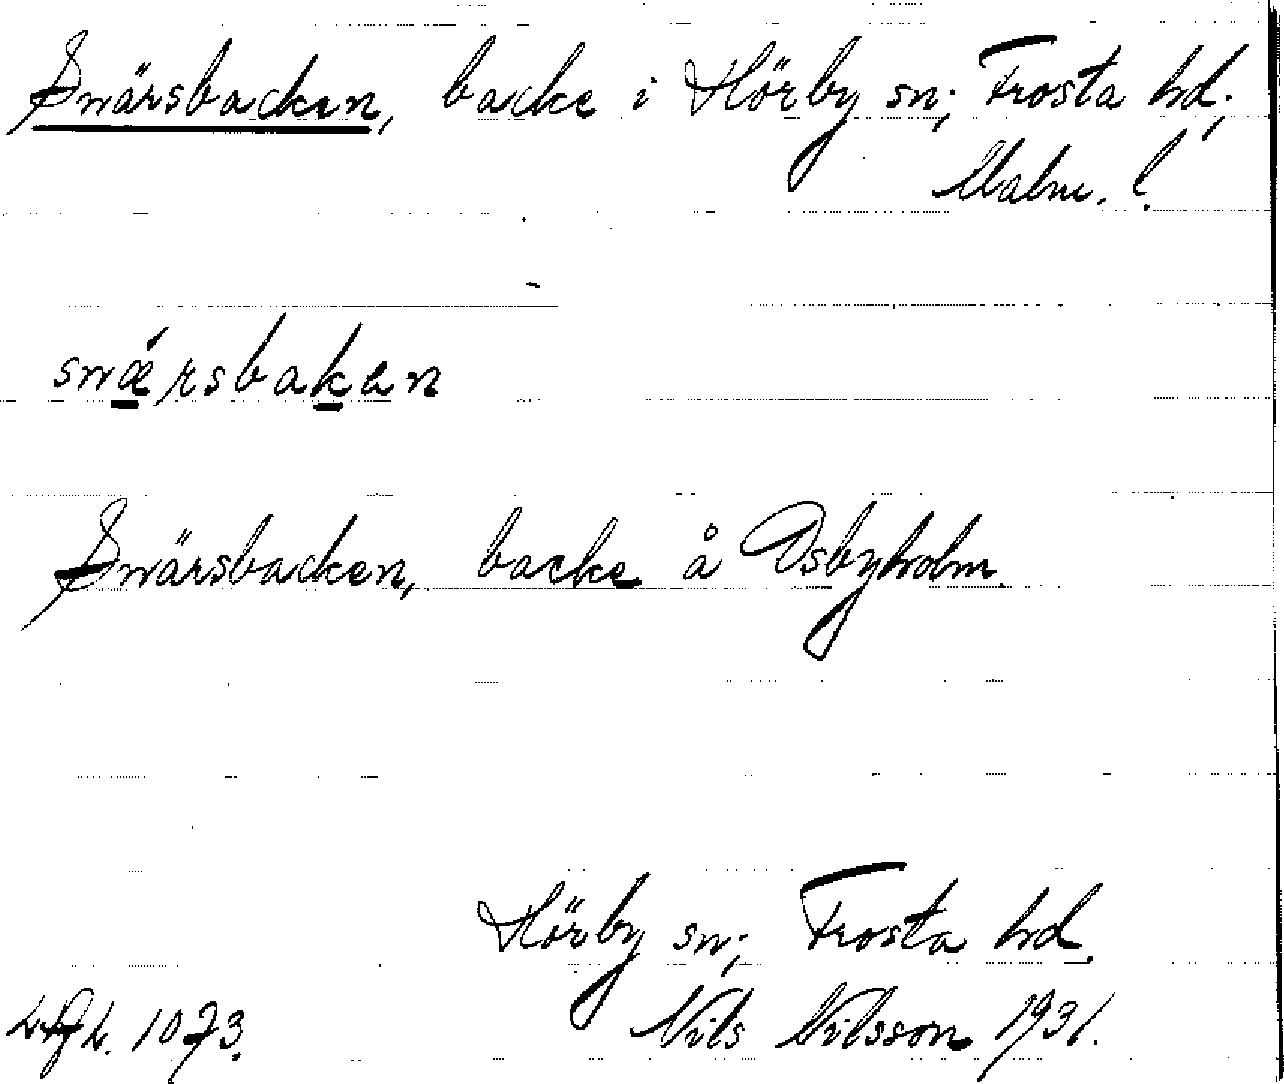 Snärsbacken, backe i Hörby sn; Frosta hd;
Malm. l.
snærsbakan
Snärsbacken, backe å Osbyholm.
Hörby sn; Frosta hd.
1073. Nils Nilsson 1931.